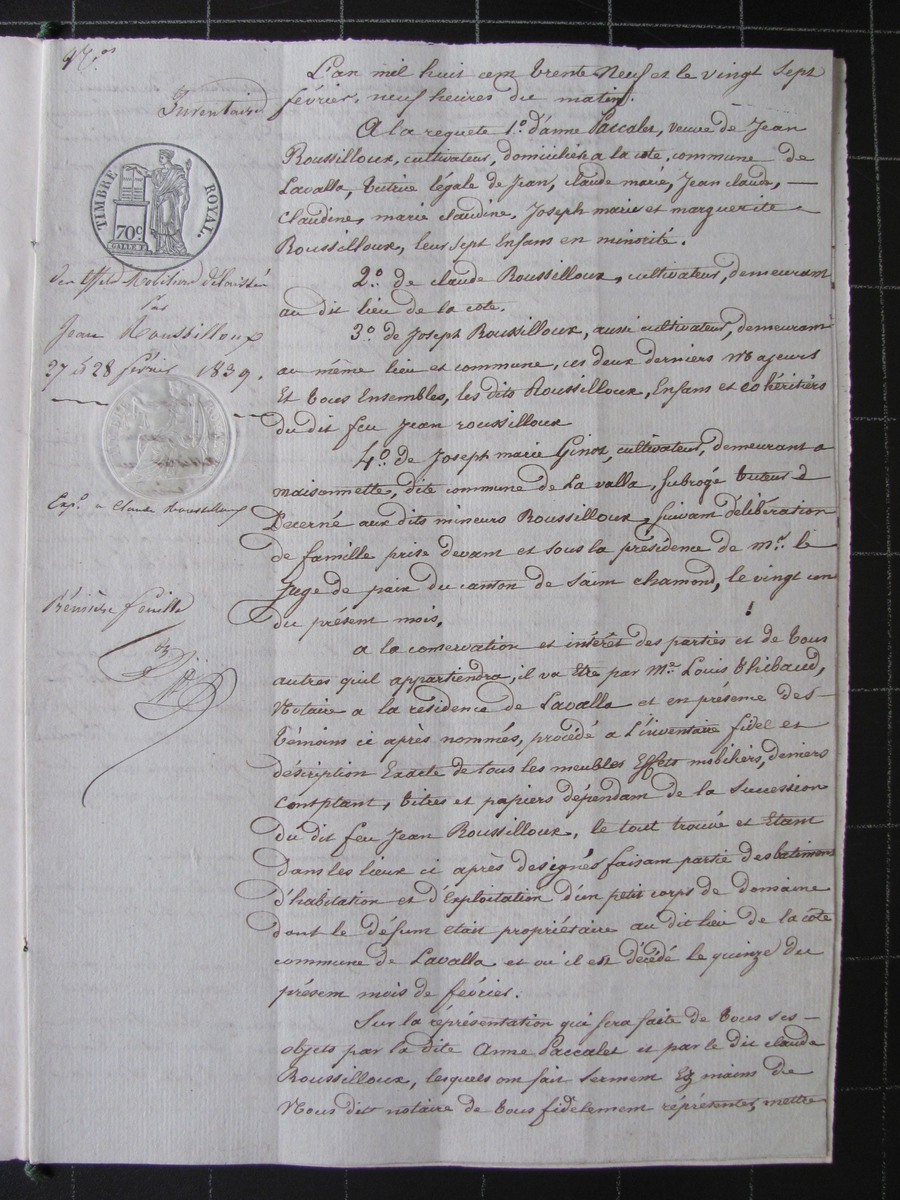 Inventaire
TIMBRE ROYAL.
70c
des Effets Mobiliers délaissés
par
Jean Roussilloux
27 et 28 février 1839.
Exp.n a Claude Roussilloux
Première feuille
L'an mil huit cent trente Neuf et le vingt sept
février, neuf heures du matin.
A la requete 1.o d'anne Paccalet, veuve de Jean
Roussilloux, cultivateur, domiciliée a la cote, commune de
Lavalla, tutrice légale de Jean, claude marie, Jean claude,
Claudine, marie claudine, Joseph marie et marguerite
Roussilloux, leur sept Enfans en minorité.
2.o de claude Roussilloux, cultivateur, demeurant
au dit lieu de la cote.
3.o de Joseph Roussilloux, aussi cultivateur, demeurant
au même lieu et commune, ces deux derniers Majeurs
Et tous Ensembles, les dits Roussilloux, Enfans et co héritiers
du dit feu Jean roussilloux
4.o de Joseph marie Ginot, cultivateur, demeurant a
maisonnette, dite commune de La valla, subrogé tuteur
Decerné aux dits mineurs Roussilloux, suivant délibération
de famille prise devant et sous la présidence de mr. le
Juge de paix du canton de saint chamond, le vingt un
du présent mois.
a la conservation et intérêt des parties et de tous
autres qu'il appartiendra, il va être par Mr. Louis thibaud,
Notaire a la résidence de Lavalla et en présence des
témoins ci après nommés, procédé a L'inventaire fidel et
déscription Exacte de tous les meubles Effets mobiliers, deniers
Comptant, titres et papiers dépendant de la succession
du dit feu Jean Roussilloux, le tout trouvé et Etant
dans les lieux ci après designés faisant partie des batimens
d'habitation et d'Exploitation d'un petit corps de domaine
dont le défunt était propriétaire au dit lieu de la côte
commune de Lavalla et où il est décédé le quinze du
présent mois de février.
Sur la réprésentation qui sera faite de tous ses
objets par la dite Anne Paccalet et par le dit claude
Roussilloux, lesquels ont fait serment Ez mains de
Nous dit notaire de tous fidèlement réprésenter, mettre